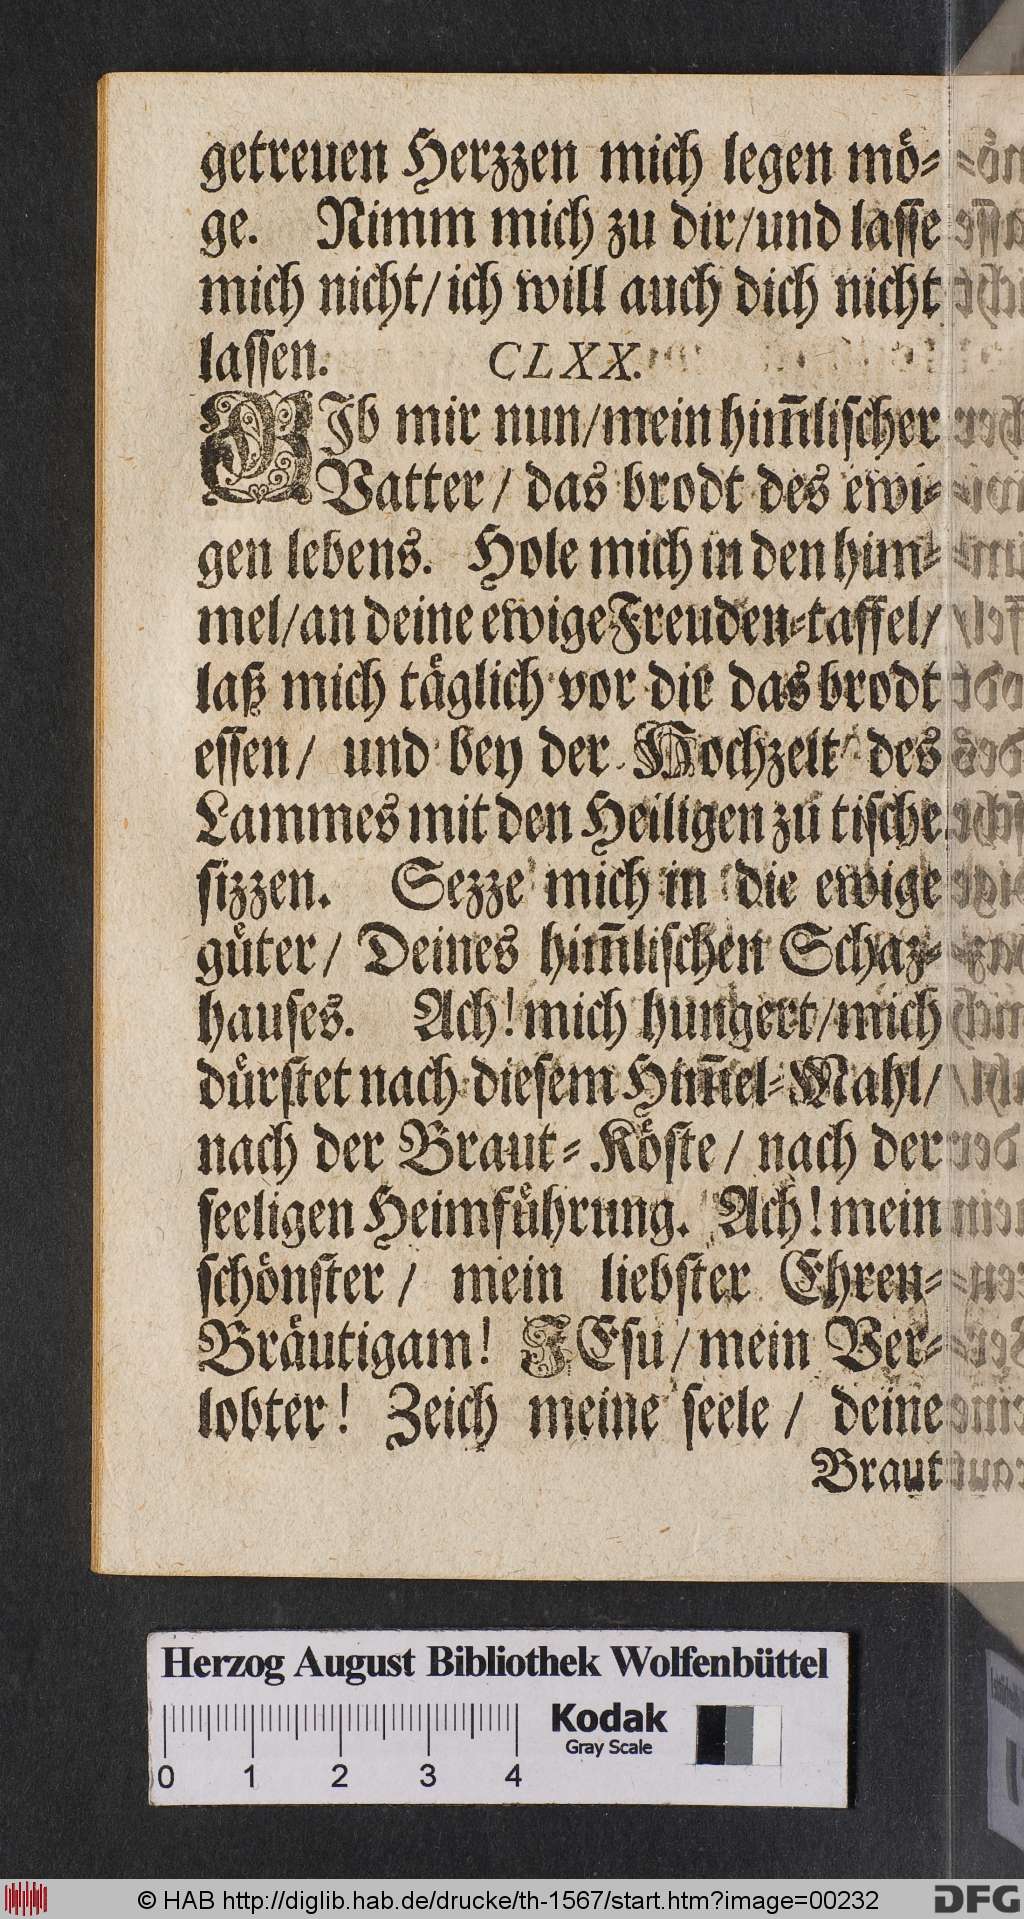 getreuen Herzzen mich legen mö-
ge. Nimm mich zu dir/und lasse
mich nicht/ ich will auch dich nicht
lassen. CLXX.
GIb mir nun/mein him̅lischer
Vatter / das brodt des ewi-
gen lebens. Hole mich in den him-
mel/an deine ewige Freuden-taffel/
laß mich täglich vor dir das brodt
essen/ und bey der Hochzeit des
Lammes mit den Heiligen zu tische
sizzen. Sezze mich in die ewige
güter/ Deines him̅lischen Schaz-
hauses. Ach! mich hungert/mich
dürstet nach diesem Him̅el-Mahl/
nach der Braut-Köste / nach der
seeligen Heimführung. Ach! mein
schönster / mein liebster Ehren-
Bräutigam! JEsu / mein Ver-
lobter! Zeich meine seele / deine
Braut
Herzog August Bibliothek Wolfenbüttel
0 1 2 3 4
Kodak
Gray Scale
© HAB http://diglib.hab.de/drucke/th-1567/start.htm?image=00232
DFG